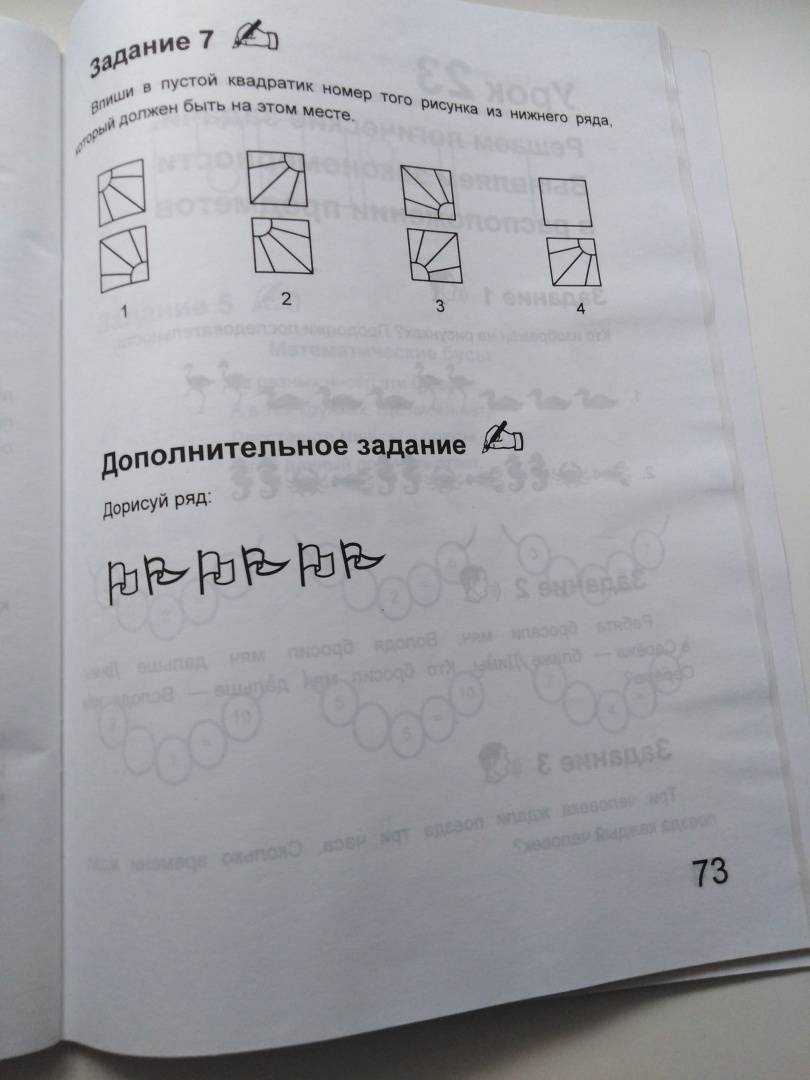 Задание 7
Впиши в пустой квадратик номер того рисунка из нижнего ряда,
который должен быть на этом месте.
1 2 3 4
Дополнительное задание
Дорисуй ряд:
73